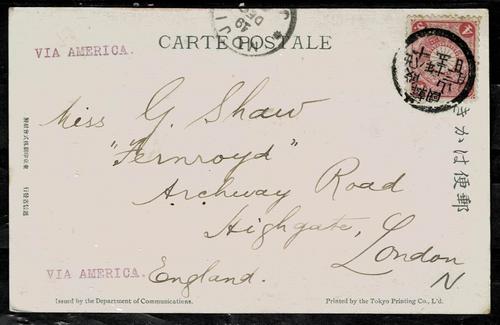 CARTE POSTALE
VIA AMERICA.
Miss G. Shaw
"Fernroyd"
Archway Road
Highgate,
London
N
England.
VIA AMERICA.
きかは便郵
Issued by the Department of Communications.
Printed by the Tokyo Printing Co., L'd.